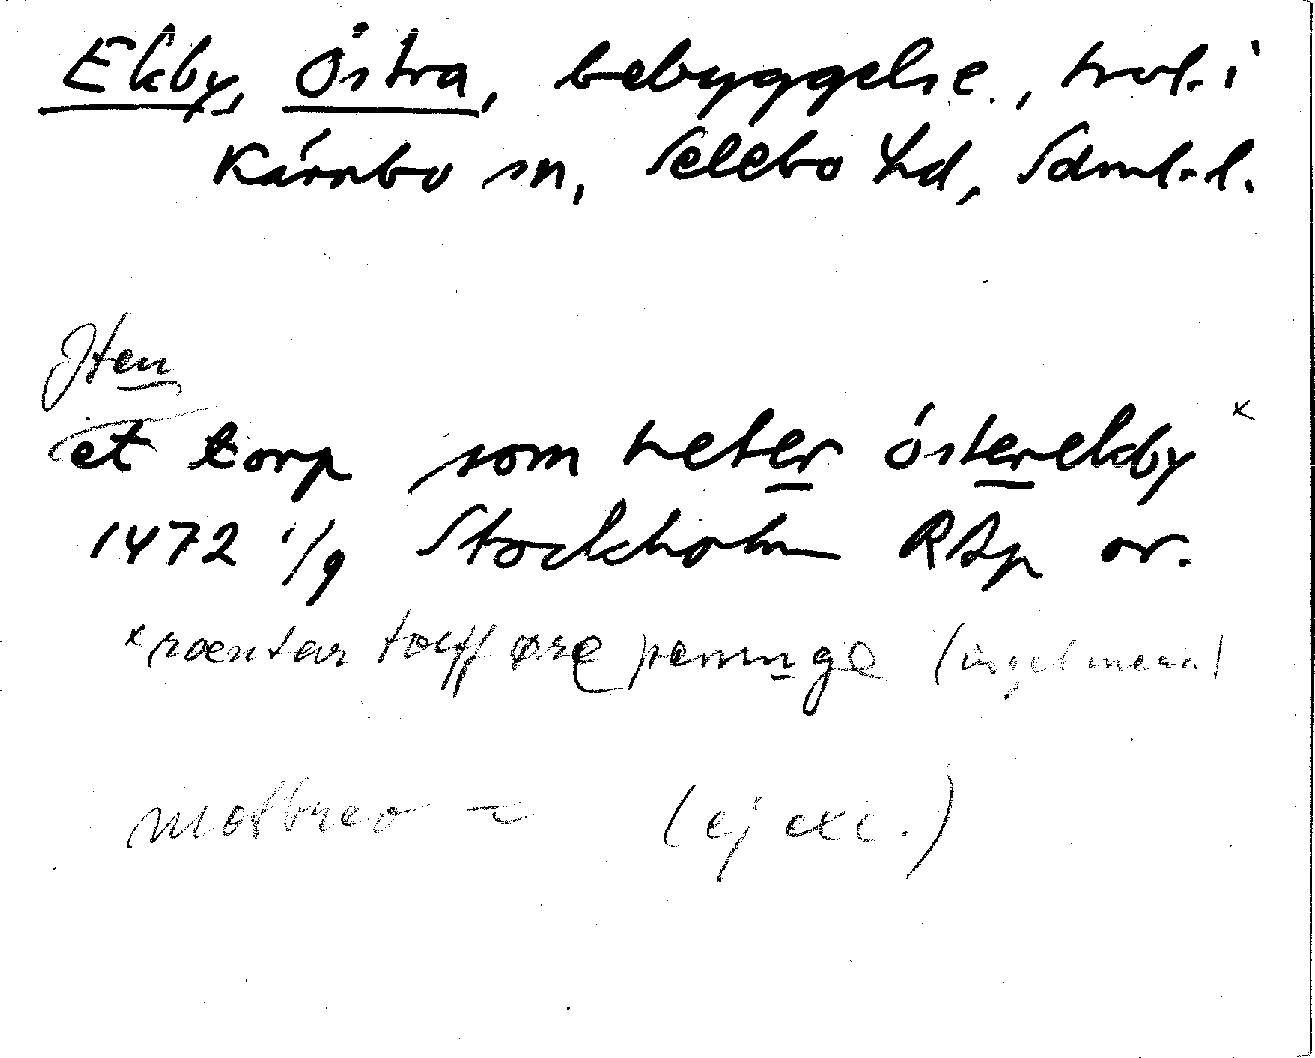 Ekby, Östra, bebyggelse, trol. i
Kärnbo sn, Selebo hd, Sdml. l.
Jten
et torp som heter österekby x
1472 1/9 Stockholm RAp or.
x ræntar tolff øre peninge
motbrev = (ej exc.)